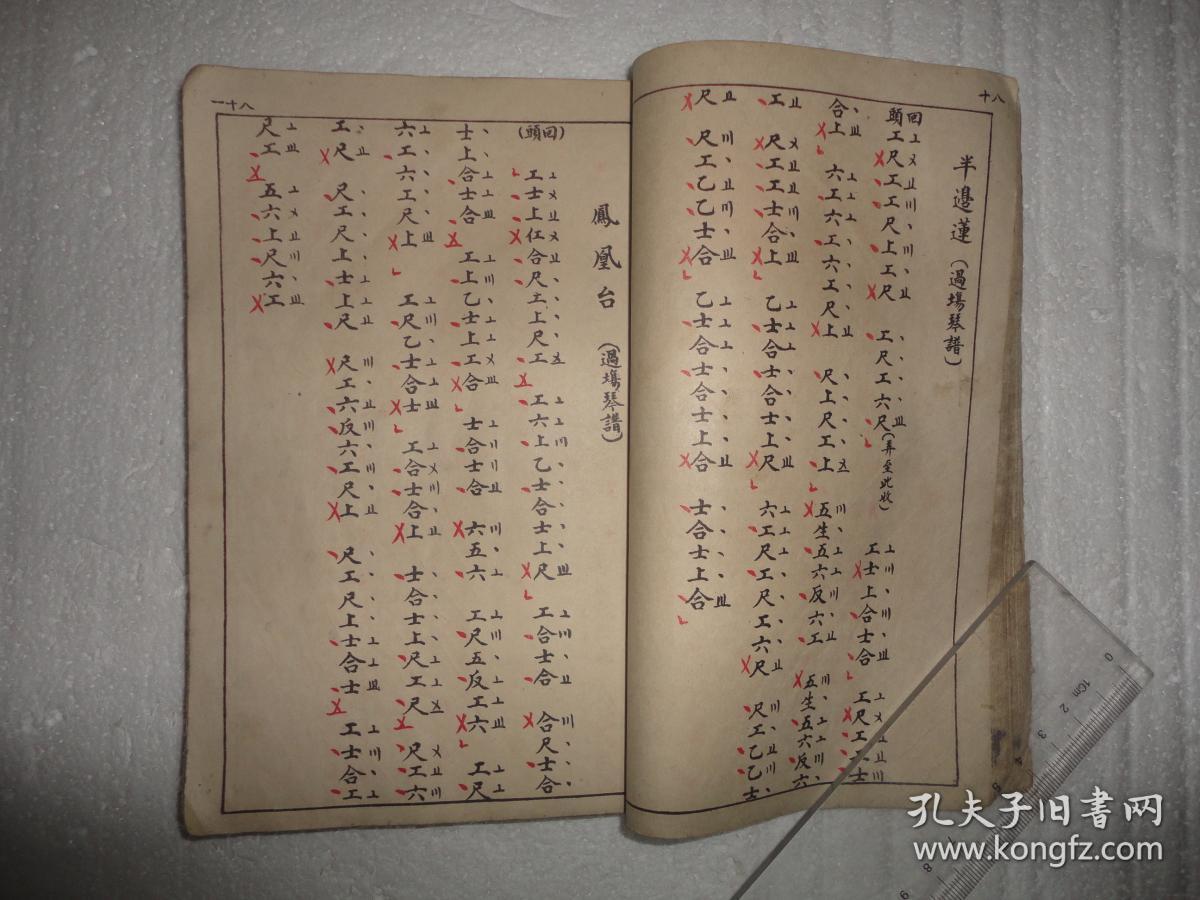 十八
半邊蓮(過塲琴譜)
回頭工尺工工尺上工尺 工尺工六尺(弄至此收) 工士上合士合 工尺工工士
合上 六工六工六工尺上 尺上尺工上 五生五六反六工 五生五六反六
工 尺工工士合上 乙士合士合士上尺 六工尺工尺工六尺 尺工乙乙士
尺 尺工乙乙士合 乙士合士合士上合 士合士上合
一十八
鳳凰台 (過塲琴譜)
(回頭) 工士上仜合尺工上尺工 工六上乙士合士上尺 工合士合 合尺士合
士上合士合 工上乙士上工合 士合士合 六五六 工尺五反工六 工尺
六工六工尺上 工尺乙士合士 工合士合上 士合士上尺工尺 尺工六
工尺 尺工尺上士上尺 尺工六反六工尺上 尺工尺上士合士 工士合工
尺工 五六上尺六工
0
1Cm
2
3
8
9
孔夫子旧书网
www.kongfz.com